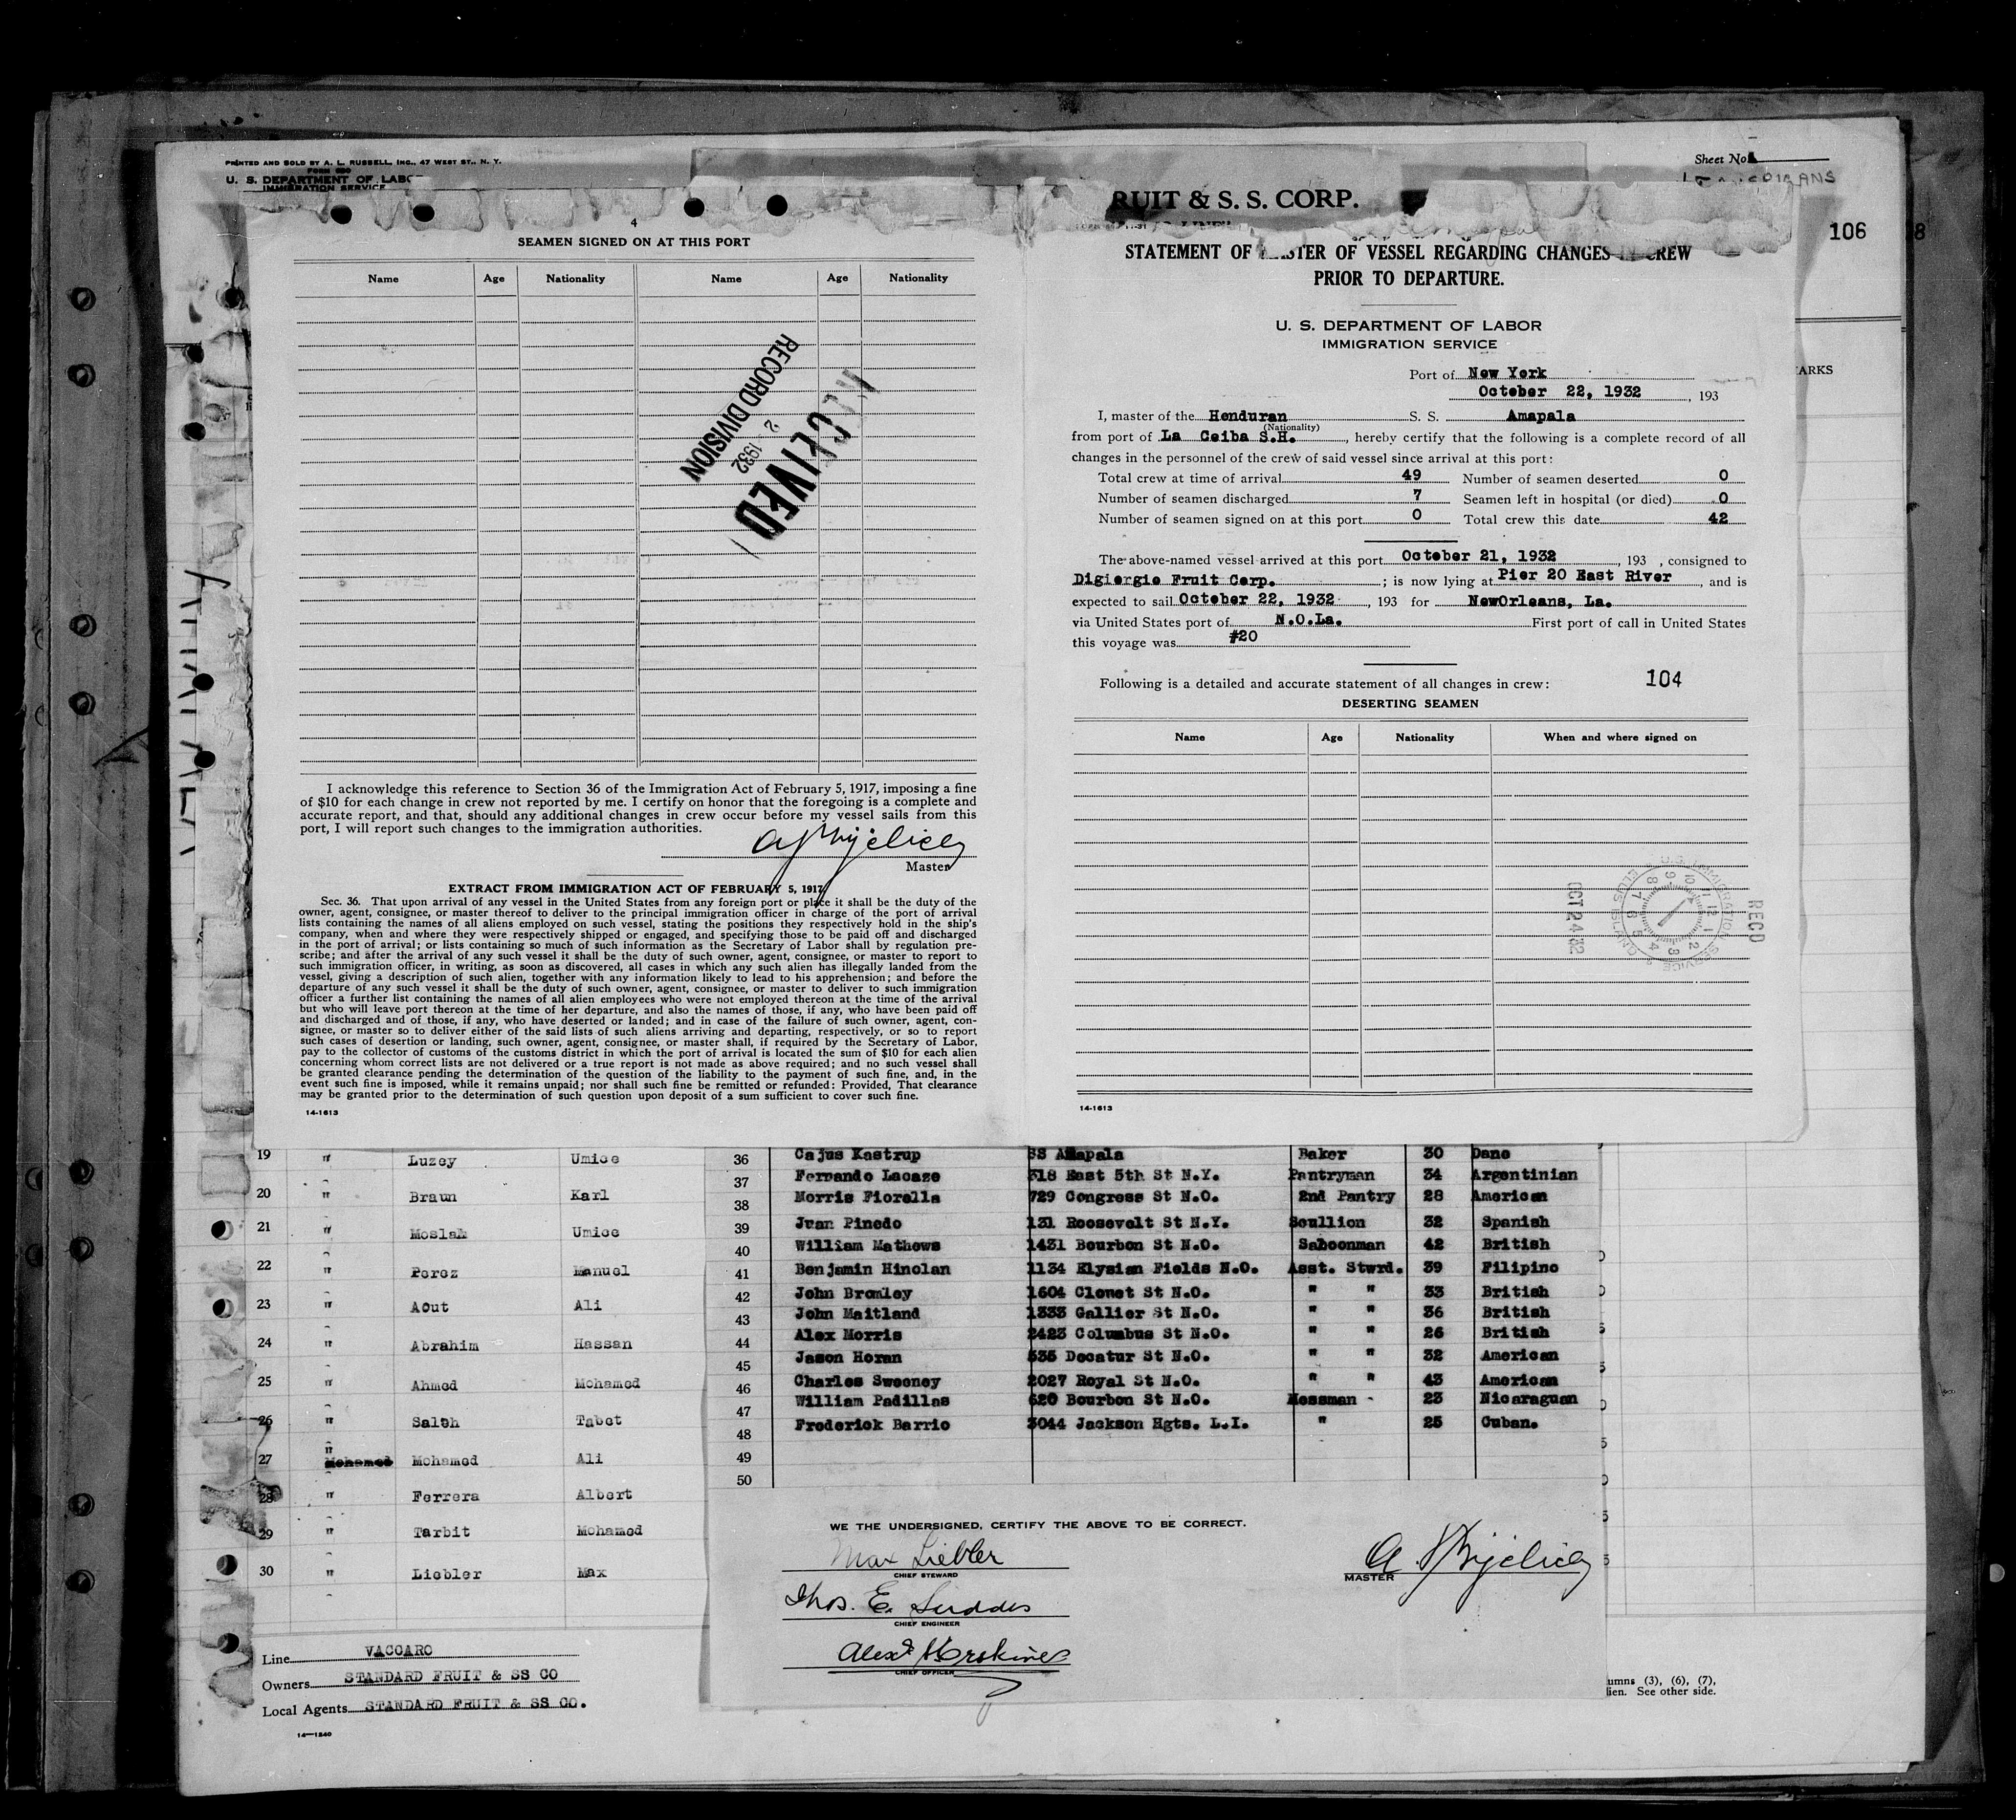 PRINTED AND SOLD BY A. L. RUSSELL, INC., 47 WEST ST., N. Y.
FORM 680
U. S. DEPARTMENT OF LABO
IMMIGRATION SERVICE
Sheet No.
106
8
ARKS
4
SEAMEN SIGNED ON AT THIS PORT
Name Age Nationality Name Age Nationality
RECORD DIVISION
2 1932
RECEIVED
I acknowledge this reference to Section 36 of the Immigration Act of February 5, 1917, imposing a fine
of $10 for each change in crew not reported by me. I certify on honor that the foregoing is a complete and
accurate report, and that, should any additional changes in crew occur before my vessel sails from this
port, I will report such changes to the immigration authorities.
Master
EXTRACT FROM IMMIGRATION ACT OF FEBRUARY 5, 1917
Sec. 36. That upon arrival of any vessel in the United States from any foreign port or place it shall be the duty of the
owner, agent, consignee, or master thereof to deliver to the principal immigration officer in charge of the port of arrival
lists containing the names of all aliens employed on such vessel, stating the positions they respectively hold in the ship's
company, when and where they were respectively shipped or engaged, and specifying those to be paid off and discharged
in the port of arrival; or lists containing so much of such information as the Secretary of Labor shall by regulation pre-
scribe; and after the arrival of any such vessel it shall be the duty of such owner, agent, consignee, or master to report to
such immigration officer, in writing, as soon as discovered, all cases in which any such alien has illegally landed from the
vessel, giving a description of such alien, together with any information likely to lead to his apprehension; and before the
departure of any such vessel it shall be the duty of such owner, agent, consignee, or master to deliver to such immigration
officer a further list containing the names of all alien employees who were not employed thereon at the time of the arrival
but who will leave port thereon at the time of her departure, and also the names of those, if any, who have been paid off
and discharged and of those, if any, who have deserted or landed; and in case of the failure of such owner, agent, con-
signee, or master so to deliver either of the said lists of such aliens arriving and departing, respectively, or so to report
such cases of desertion or landing, such owner, agent, consignee, or master shall, if required by the Secretary of Labor,
pay to the collector of customs of the customs district in which the port of arrival is located the sum of $10 for each alien
concerning whom correct lists are not delivered or a true report is not made as above required; and no such vessel shall
be granted clearance pending the determination of the question of the liability to the payment of such fine, and, in the
event such fine is imposed, while it remains unpaid; nor shall such fine be remitted or refunded: Provided, That clearance
may be granted prior to the determination of such question upon deposit of a sum sufficient to cover such fine.
14-1613
RUIT & S. S. CORP.
STATEMENT OF MASTER OF VESSEL REGARDING CHANGES IN CREW
PRIOR TO DEPARTURE.
U. S. DEPARTMENT OF LABOR
IMMIGRATION SERVICE
Port of New York
October 22, 1932, 193
I, master of the Honduran S. S. Amapala
(Nationality)
from port of La Ceiba S.H., hereby certify that the following is a complete record of all
changes in the personnel of the crew of said vessel since arrival at this port:
Total crew at time of arrival 49 Number of seamen deserted 0
Number of seamen discharged 7 Seamen left in hospital (or died) 0
Number of seamen signed on at this port 0 Total crew this date 42
The above-named vessel arrived at this port October 21, 1932, 193 , consigned to
Digiorgio Fruit Corp. ; is now lying at Pier 20 East River, and is
expected to sail October 22, 1932, 193 for NewOrleans, La.
via United States port of N.O.La. First port of call in United States
this voyage was #20
Following is a detailed and accurate statement of all changes in crew: 104
DESERTING SEAMEN
Name Age Nationality When and where signed on
RECD
U.S. IMMIGRATION SERVICE
ELLIS ISLAND
OCT 24 32
14-1613
19 " Luzey Umice
20 " Braun Karl
21 " Moslah Umice
22 " Perez Manuel
23 " Aout Ali
24 " Abrahim Hassan
25 " Ahmed Mohamed
26 " Saleh Tabet
27 " Mohamed Mohamed Ali
28 " Ferrera Albert
29 " Tarbit Mohamed
30 " Liebler Max
Line VACCARO
Owners STANDARD FRUIT & SS CO
Local Agents STANDARD FRUIT & SS CO.
14—1540
36 Cajus Kastrup SS Amapala Baker 30 Dane
37 Fernando Lacaze 318 East 5th St N.Y. Pantryman 34 Argentinian
38 Morris Fiorella 729 Congress St N.O. 2nd Pantry 28 American
39 Juan Pinedo 131 Roosevelt St N.Y. Scullion 32 Spanish
40 William Mathews 1431 Bourbon St N.O. Saloonman 42 British
41 Benjamin Hinolan 1134 Elysian Fields N.O. Asst. Stwrd. 39 Filipino
42 John Bromley 1604 Clouet St N.O. " " 33 British
43 John Maitland 1333 Gallier St N.O. " " 36 British
44 Alex Morris 2423 Columbus St N.O. " " 26 British
45 Jason Horan 535 Decatur St N.O. " " 32 American
46 Charles Sweeney 2027 Royal St N.O. " " 43 American
47 William Padillas 620 Bourbon St N.O. Messman - 23 Nicaraguan
48 Frederick Barrio 3044 Jackson Hgts. L.I. " 25 Cuban.
49
50
WE THE UNDERSIGNED, CERTIFY THE ABOVE TO BE CORRECT.
Max Liebler
CHIEF STEWARD
Thos. E. Suddes
CHIEF ENGINEER
Alexr Erskine
CHIEF OFFICER
MASTER
umns (3), (6), (7),
lien. See other side.